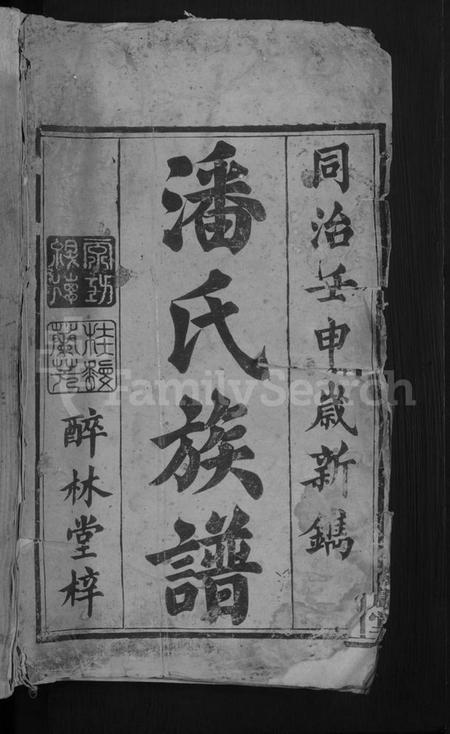 同治壬申歲新鐫
潘氏族譜
醉林堂梓
FamilySearch